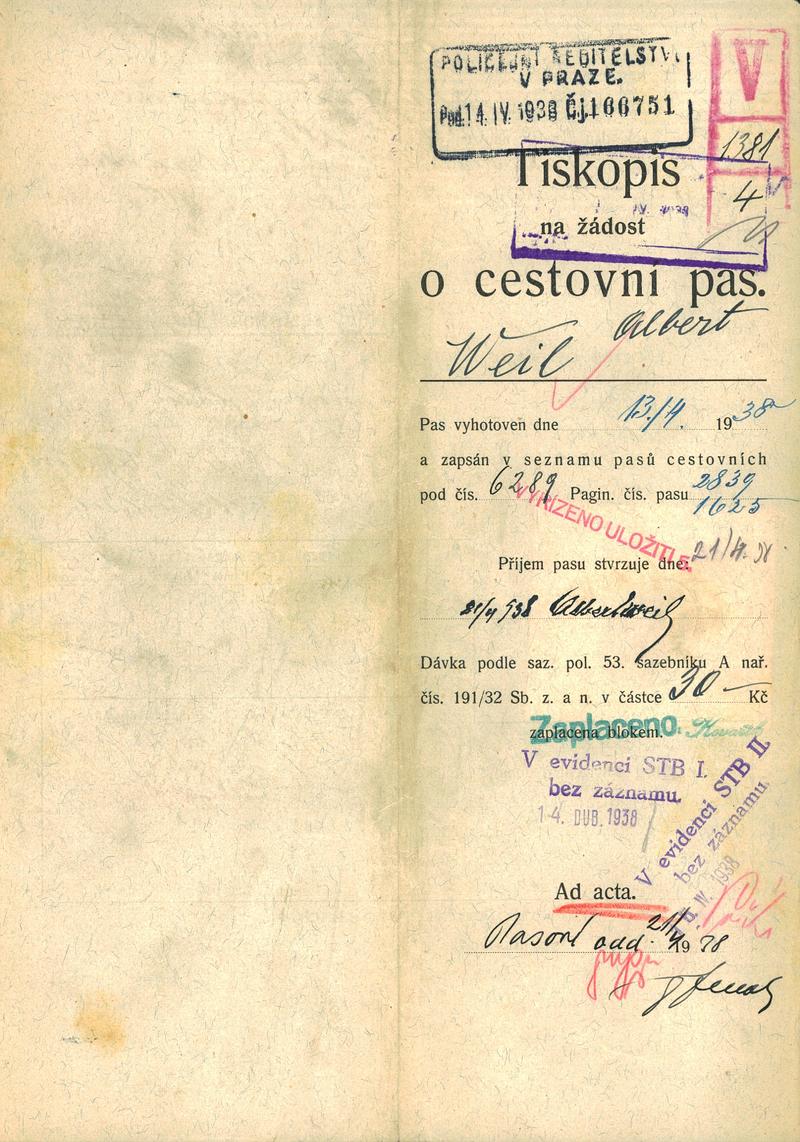 POLICEJNÍ ŘEDITELSTVÍ
V PRAZE.
Pod. 14. IV. 1938 Čj. 166751
V
1381
4
Tiskopis
IV. 1938
na žádost
o cestovní pas.
Weil Albert
Pas vyhotoven dne 13./4. 1938
a zapsán v seznamu pasů cestovních
pod čís. 6289 Pagin. čís. pasu 2839
1625
VYŘÍZENO ULOŽIT
Příjem pasu stvrzuje dne: 21/4. 38
21/4 938 Albert Weil
Dávka podle saz. pol. 53. sazebníku A nař.
čís. 191/32 Sb. z. a n. v částce 30 — Kč
Zaplaceno
zaplacena blokem.
V evidenci STB I.
bez záznamu.
14. DUB. 1938
V evidenci STB II.
bez záznamu.
IV. 1938
Ad acta.
Pasové odd. 21/4 1938